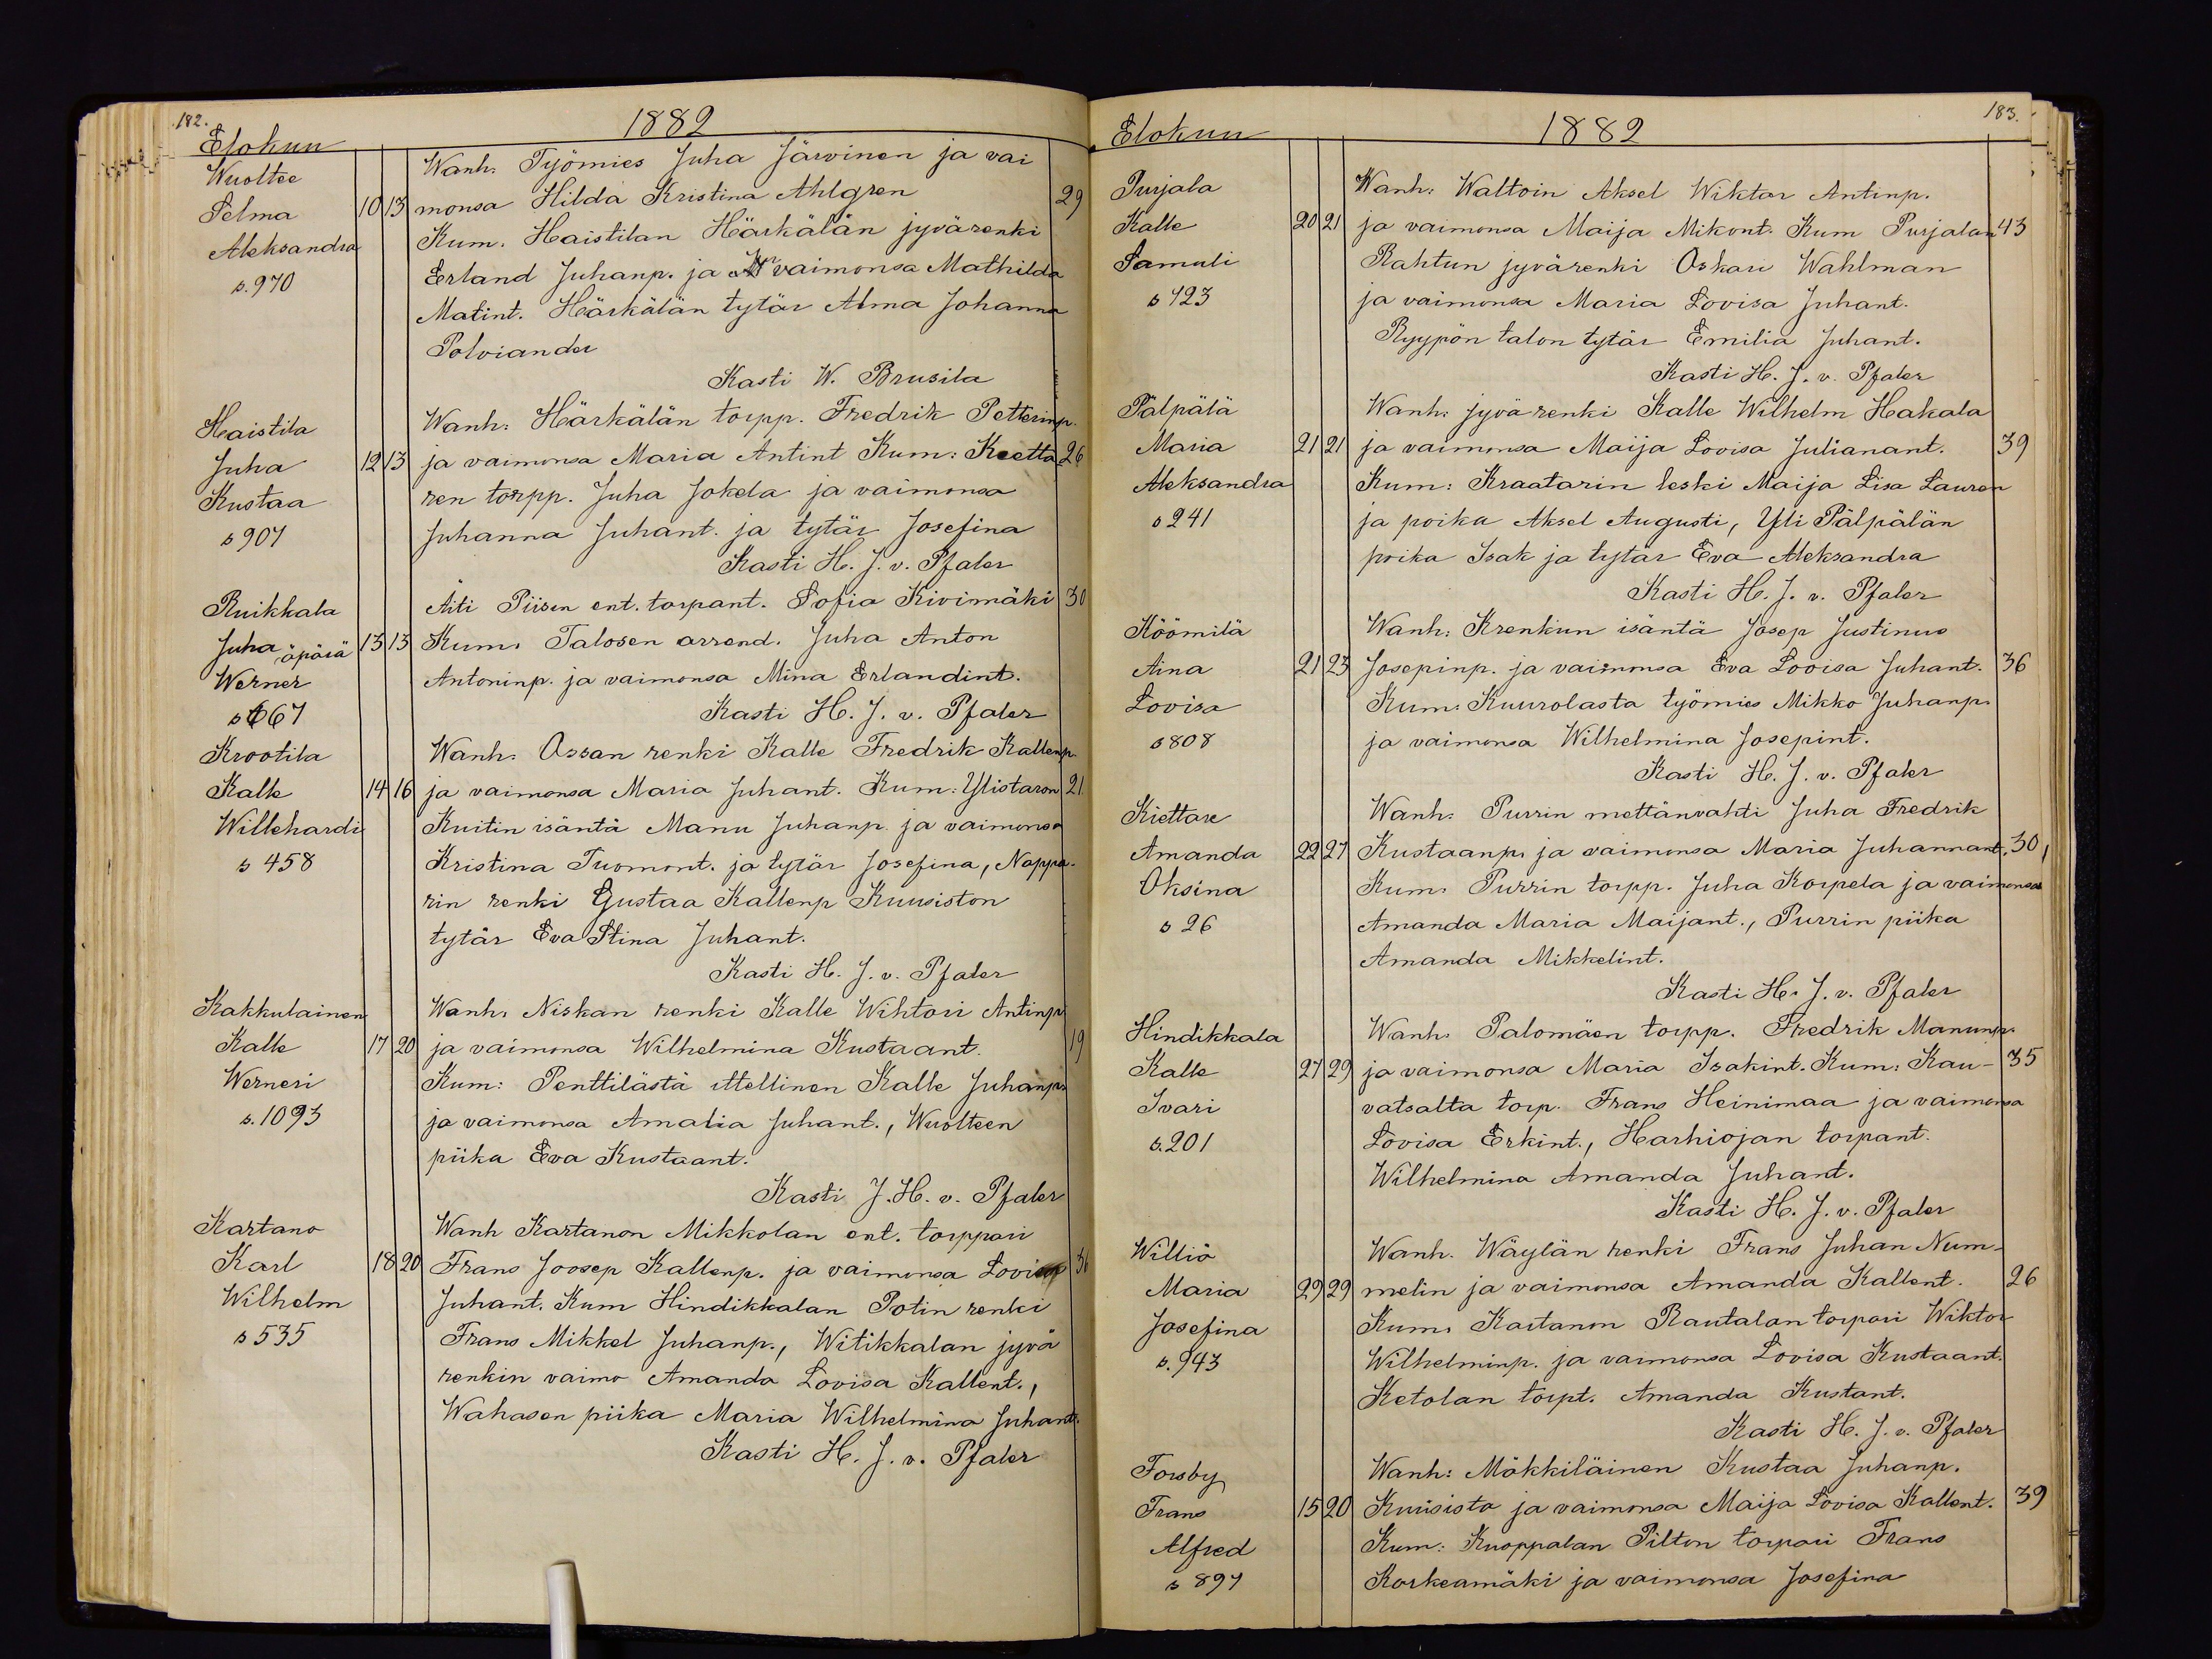 182.
Elokuu
1882
Wuoltee
Wanh. Työmies Juha Järvinen ja vai
Selma 10 13 monsa Hilda Kristina Ahlgren 29
Aleksandra Kum. Haistilan Härkälän jyvärenki
s. 970 Erland Juhanp. ja vaimonsa Mathilda
Matint. Härkälän tytär Alma Johanna
Polviander
Kasti W. Brusila
Haistila Wanh: Härkälän torpp. Fredrik Petterinp.
Juha 12 13 ja vaimonsa Maria Antint Kum: Keetta 26
Kustaa ren torpp. Juha Jokela ja vaimonsa
s 907 Juhanna Juhant. ja tytär Josefina
Kasti H. J. v. Pfaler
Ruikkala Äiti Piisen ent. torpant. Sofia Kivimäki 30
Juha äpärä 13 13 Kum. Talosen arrend. Juha Anton
Werner Antoninp. ja vaimonsa Mina Erlandint.
s 667 Kasti H. J. v. Pfaler
Krootila Wanh. Ossan renki Kalle Fredrik Kallenp.
Kalle 14 16 ja vaimonsa Maria Juhant. Kum: Ylistaron 21
Willehardi Kuitin isäntä Manu Juhanp. ja vaimonsa
s 458 Kristina Tuomont. ja tytär Josefina, Nappa-
rin renki Gustaa Kallenp Kuusiston
tytär Eva Stina Juhant.
Kasti H. J. v. Pfaler
Kakkulainen Wanh. Niskan renki Kalle Wihtori Antinp
Kalle 17 20 ja vaimonsa Wilhelmina Kustaant. 19
Werneri Kum: Penttilästä ittellinen Kalle Juhanp.
s. 1093 ja vaimonsa Amalia Juhant., Wuolteen
piika Eva Kustaant.
Kasti J. H. v. Pfaler
Kartano Wanh Kartanon Mikkolan ent. torppari
Karl 18 20 Frans Joosep Kallenp. ja vaimonsa Lovisa 36
Wilhelm Juhant. Kum Hindikkalan Potin renki
s 535 Frans Mikkel Juhanp., Witikkalan jyvä
renkin vaimo Amanda Lovisa Kallent.,
Wahasen piika Maria Wilhelmina Juhant.
Kasti H. J. v. Pfaler
183.
Elokuu
1882
Purjala Wanh: Waltoin Aksel Wiktor Antinp.
Kalle 20 21 ja vaimonsa Maija Mikont. Kum Purjalan 43
Samuli Rahtun jyvärenki Oskari Wahlman
s 423 ja vaimonsa Maria Lovisa Juhant.
Ryypön talon tytär Emilia Juhant.
Kasti H. J. v. Pfaler
Pälpälä Wanh: jyvä renki Kalle Wilhelm Hakala
Maria 21 21 ja vaimonsa Maija Lovisa Julianant. 39
Aleksandra Kum: Kraatarin leski Maija Lisa Lauren
s 241 ja poika Aksel Augusti, Yli Pälpälän
poika Isak ja tytär Eva Aleksandra
Kasti H. J. v. Pfaler
Köömilä Wanh: Krenkun isäntä Josep Justinus
Aina 21 23 Josepinp. ja vaimonsa Eva Lovisa Juhant. 36
Lovisa Kum: Kuurolasta työmies Mikko Juhanp.
s 808 ja vaimonsa Wilhelmina Josepint.
Kasti H. J. v. Pfaler
Kiettare Wanh. Purrin mettänvahti Juha Fredrik
Amanda 22 27 Kustaanp. ja vaimonsa Maria Juhannant. 30
Oksina Kum. Purrin torpp. Juha Korpela ja vaimonsa
s 26 Amanda Maria Maijant., Purrin piika
Amanda Mikkelint.
Kasti H. J. v. Pfaler
Hindikkala Wanh. Palomäen torpp. Fredrik Manunp.
Kalle 27 29 ja vaimonsa Maria Isakint. Kum: Kau- 35
Ivari vatsalta torp. Frans Heinimaa ja vaimonsa
s. 201 Lovisa Erkint., Harhiojan torpant.
Wilhelmina Amanda Juhant.
Kasti H. J. v. Pfaler
Williö Wanh. Wäylän renki Frans Juhan Num-
Maria 29 29 melin ja vaimonsa Amanda Kallent. 26
Josefina Kum. Kartanon Rautalan torpari Wiktor
s. 943 Wilhelminp. ja vaimonsa Lovisa Kustaant.
Ketolan torpt. Amanda Kustant.
Kasti H. J. v. Pfaler
Forsby Wanh: Mökkiläinen Kustaa Juhanp.
Frans 15 20 Kuusisto ja vaimonsa Maija Lovisa Kallent. 39
Alfred Kum: Kuoppalan Pilton torpari Frans
s 897 Korkeamäki ja vaimonsa Josefina